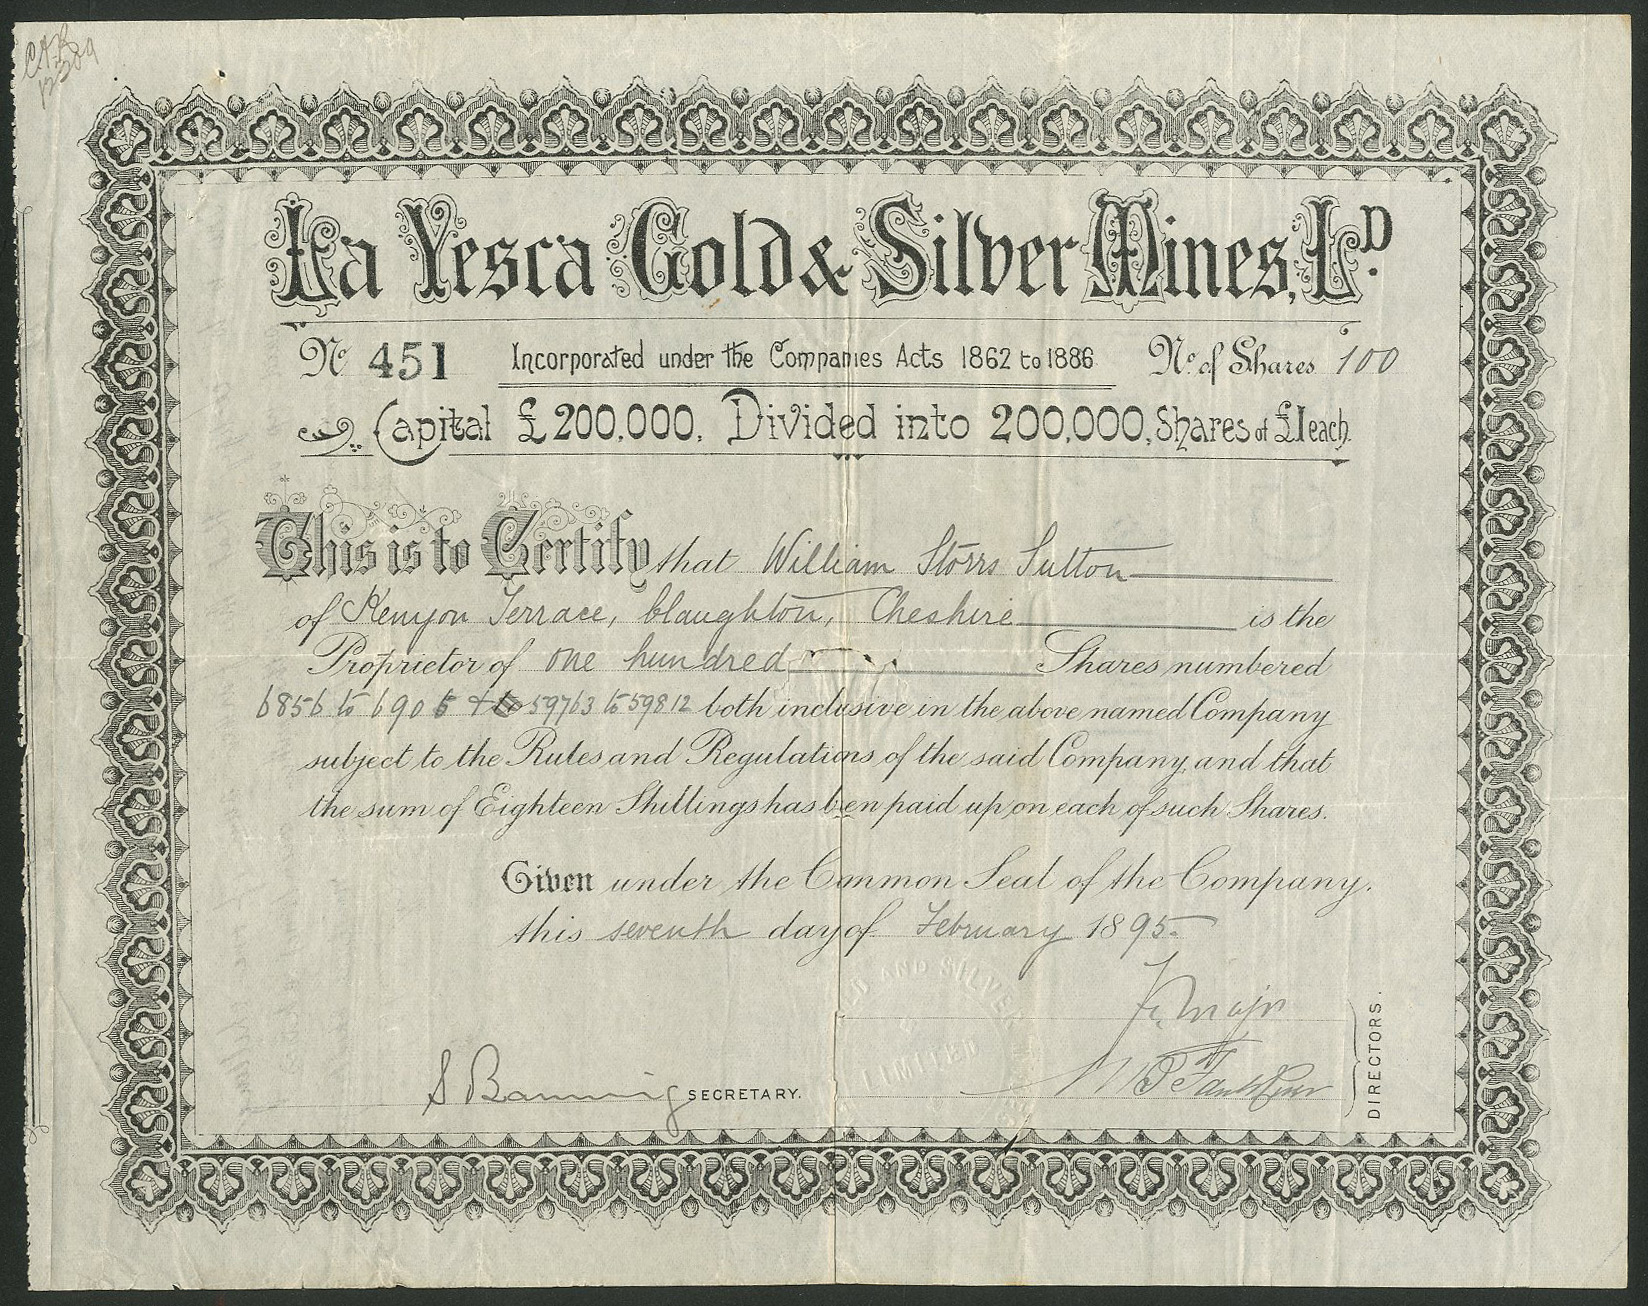 La Yesca Gold & Silver Mines, LD.
No 451 Incorporated under the Companies Acts 1862 to 1886 No. of Shares 100
Capital £200,000, Divided into 200,000, Shares of £1 each.
This is to Certify that William Storrs Sutton
of Kenyon Terrace, Claughton, Cheshire is the
Proprietor of one hundred Shares, numbered
6856 to 6905 & to 59763 to 59812 both inclusive in the above named Company
subject to the Rules and Regulations of the said Company, and that
the sum of Eighteen Shillings has been paid up on each of such Shares.
Given under the Common Seal of the Company.
this seventh day of February 1895.
AND SILVER
LIMITED
S Banning SECRETARY.
DIRECTORS.